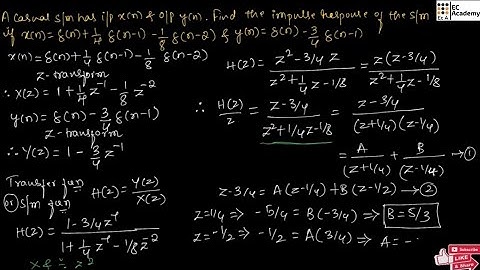 A causal s/m has i/p x(n) & o/p y(n). Find the impulse response of the s/m
if x(n)=δ(n)+1/4 δ(n-1)-1/8 δ(n-2) & y(n)=δ(n)-3/4 δ(n-1)
x(n)=δ(n)+1/4 δ(n-1)-1/8 δ(n-2)
Z-transform
∴ X(z) = 1 + 1/4 z^-1 - 1/8 z^-2
y(n)=δ(n)-3/4 δ(n-1)
Z-transform
∴ Y(z) = 1 - 3/4 z^-1
Transfer fun
or s/m fun H(z)=Y(z)/X(z)
H(z) = (1-3/4 z^-1)/(1+1/4 z^-1 -1/8 z^-2)
x & ÷ z^2
H(z) = (z^2-3/4 z)/(z^2+1/4 z-1/8) = z(z-3/4)/(z^2+1/4 z-1/8)
∴ H(z)/z = (z-3/4)/(z^2+1/4 z-1/8) = (z-3/4)/((z+1/4)(z-1/4))
= A/(z+1/4) + B/(z-1/4) → ①
z-3/4 = A(z-1/4)+B(z-1/2) → ②
z=1/4 ⇒ -5/4 = B(-3/4) ⇒ B=5/3
z=-1/2 ⇒ -1/2 = A(3/4) ⇒ A=-
EC Academy
EC A
LIKE
& Share